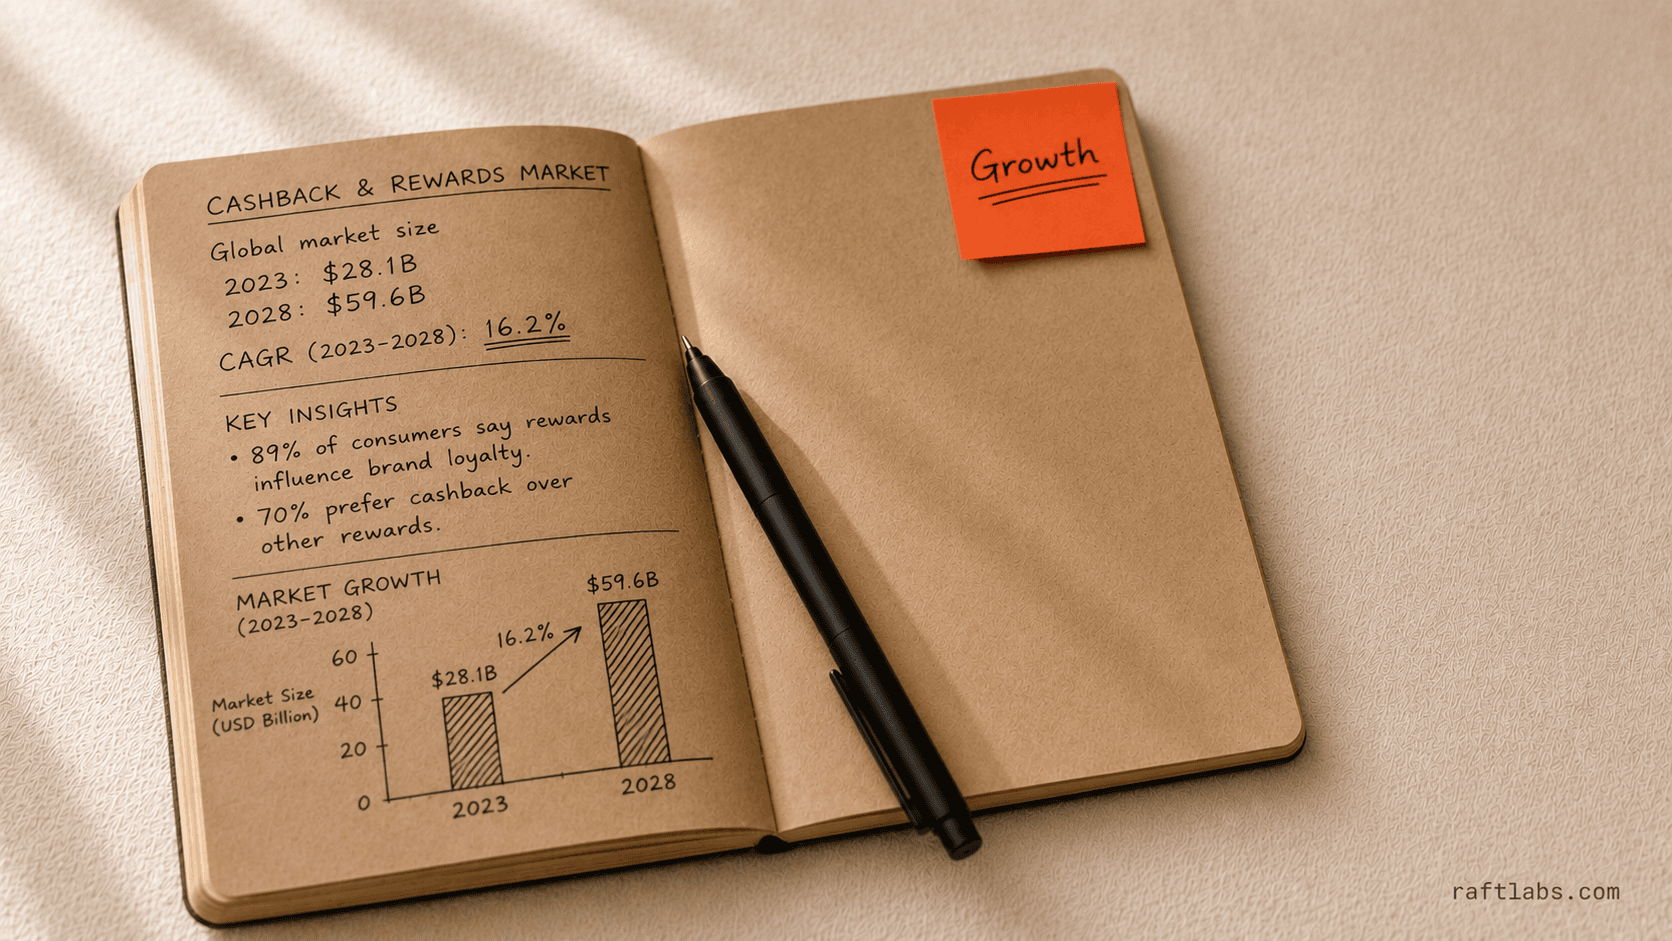 CASHBACK & REWARDS MARKET
Global market size
2023: $28.1B
2028: $59.6B
CAGR (2023-2028): 16.2%
KEY INSIGHTS
• 89% of consumers say rewards
influence brand loyalty.
• 70% prefer cashback over
other rewards.
MARKET GROWTH
(2023-2028)
Market Size
(USD Billion)
60
40
20
0
$28.1B
16.2%
$59.6B
2023
2028
Growth
raftlabs.com